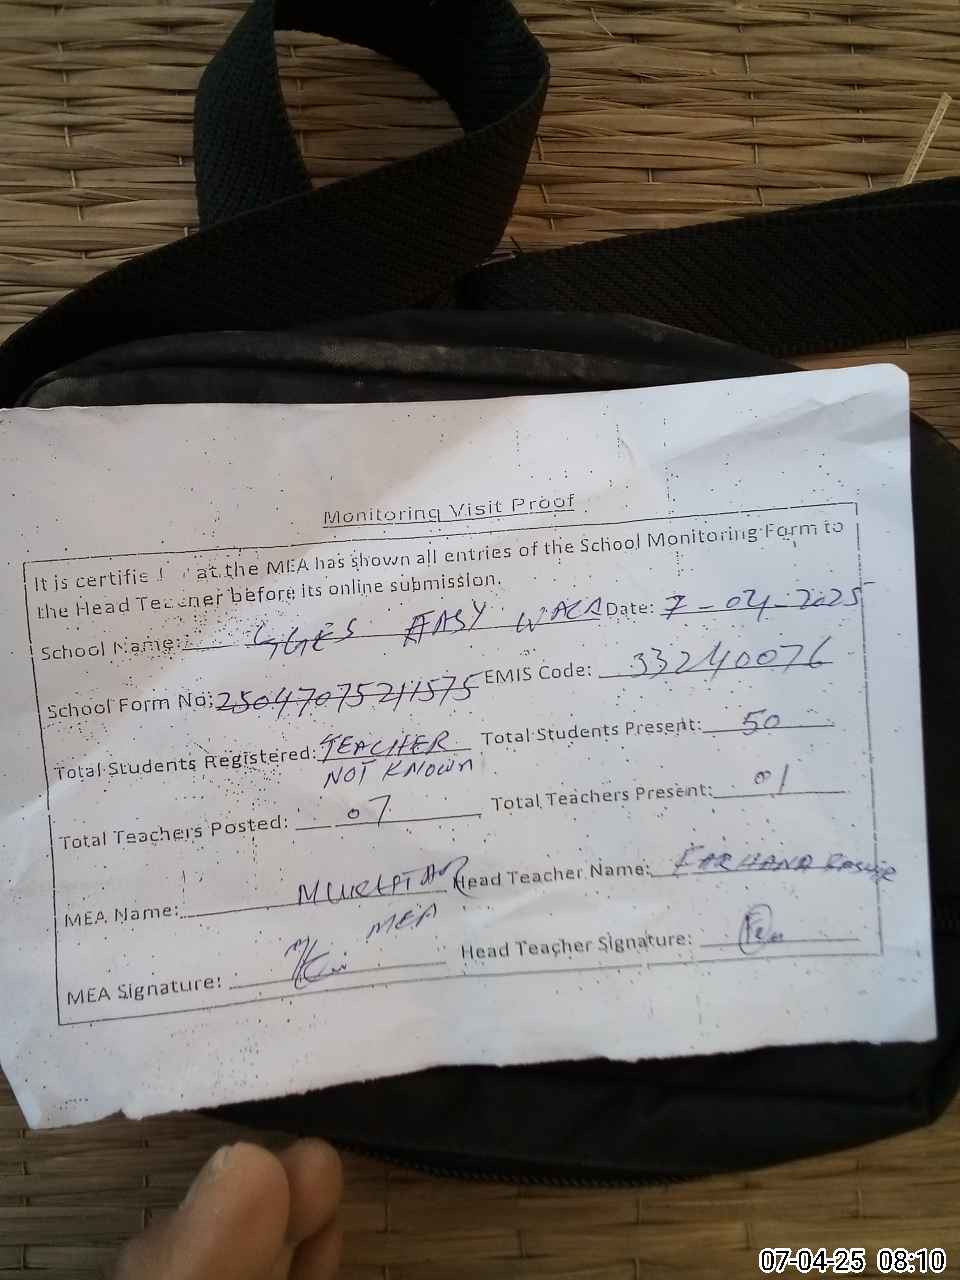 Monitoring Visit Proof
It is certified that the MEA has shown all entries of the School Monitoring Form to
the Head Teacher before its online submission.
School Name: GGES EASY WALA Date: 7-04-2025
School Form No: 25047075211575 EMIS Code: 33240076
Total Students Registered: TEACHER Total Students Present: 50
NOT KNOWN
Total Teachers Posted: 07 Total Teachers Present: 01
MEA Name: MUKHTAR Head Teacher Name: FARHANA
MEA
MEA Signature: Head Teacher Signature:
07-04-25 08:10